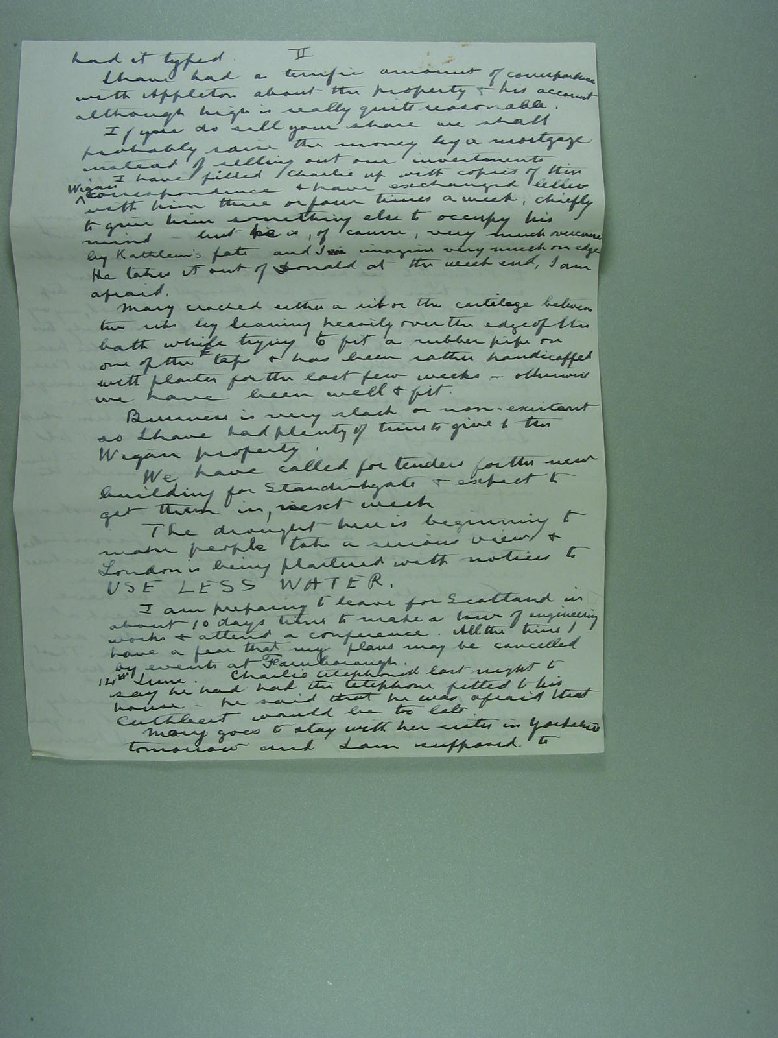 II
had it typed.
I have had a terrific amount of correspondence
with Appleton about the property & his account
although high is really quite reasonable.
If you do sell your share we shall
probably raise the money by a mortgage
instead of selling out our investments
I have filled Charlie up with copies of this
Wigan correspondence & have exchanged letters
with him three or four times a week, chiefly
to give him something else to occupy his
mind - but he is, of course, very much overcome
by Kathleen's fate and I imagine very much on edge
He takes it out of Donald at the week end, I am
afraid.
Mary cracked either a rib or the cartilage between
two ribs by leaning heavily over the edge of the
bath while trying to fit a rubber pipe on
one of the taps & has been rather handicapped
with plaster for the last few weeks - otherwise
we have been well & fit.
Business is very slack or non-existent
so I have had plenty of time to give to the
Wigan property.
We have called for tenders for the new
building for Standishgate & expect to
get them in, next week
The drought here is beginning to
make people take a serious view &
London is being plastered with notices to
USE LESS WATER.
I am preparing to leave for Scotland in
about 10 days time to make a tour of engineering
works & attend a conference. All the time I
have a fear that my plans may be cancelled
by events at Farnborough.
14th June. Charlie telephoned last night to
say he had had the telephone fitted to his
house - he said that he was afraid that
Cuthbert would be too late
Mary goes to stay with her sister in Yorkshire
tomorrow and I am supposed to